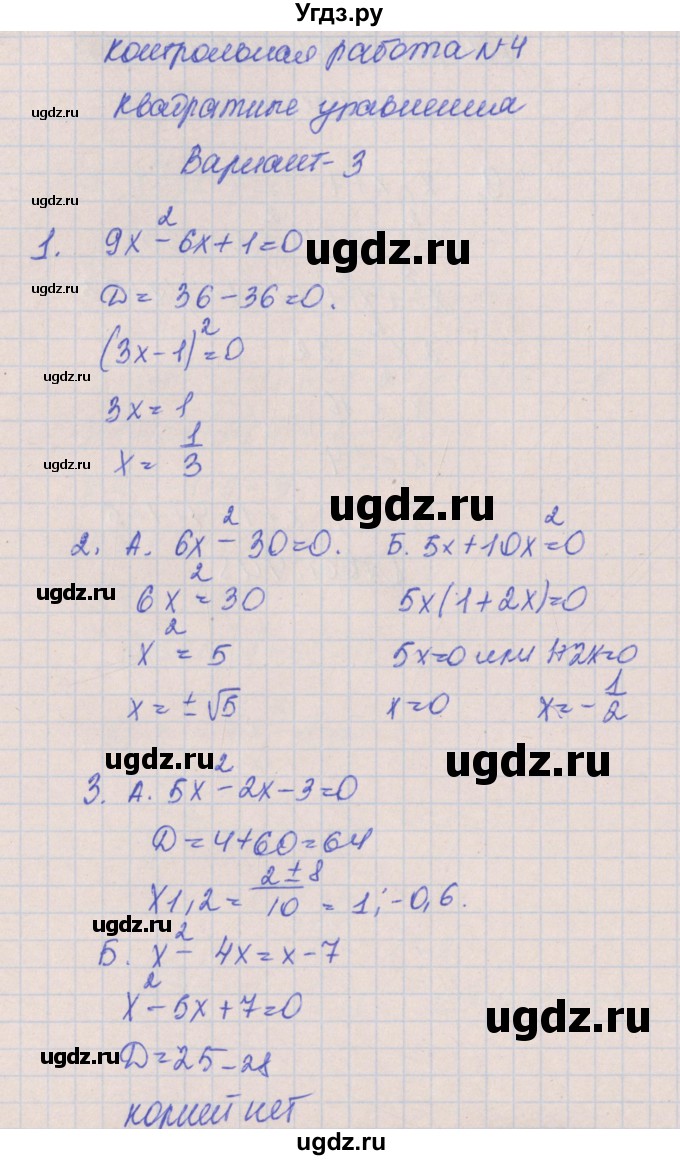 Угдз.ру
контрольная работа №4
ugdz.ru
квадратные уравнения
Вариант-3
ugdz.ru
1. 9x² - 6x + 1 = 0
ugdz.ru
ugdz.ru
D = 36 - 36 = 0.
(3x - 1)² = 0
ugdz.ru
3x = 1
x = 1/3
ugdz.ru
ugdz.ru
2. А. 6x² - 30 = 0. Б. 5x + 10x² = 0
ugdz.ru
6x² = 30 5x(1 + 2x) = 0
x² = 5 5x = 0 или 1+2x=0
x = ± √5 x = 0 x = - 1/2
ugdz.ru
ugdz.ru
3. А. 5x² - 2x - 3 = 0
D = 4 + 60 = 64
x1,2 = 2 ± 8 / 10 = 1; -0,6.
ugdz.ru
Б. x² - 4x = x - 7
x² - 5x + 7 = 0
ugdz.ru
ugdz.ru
D = 25 - 28
корней нет
ugdz.ru